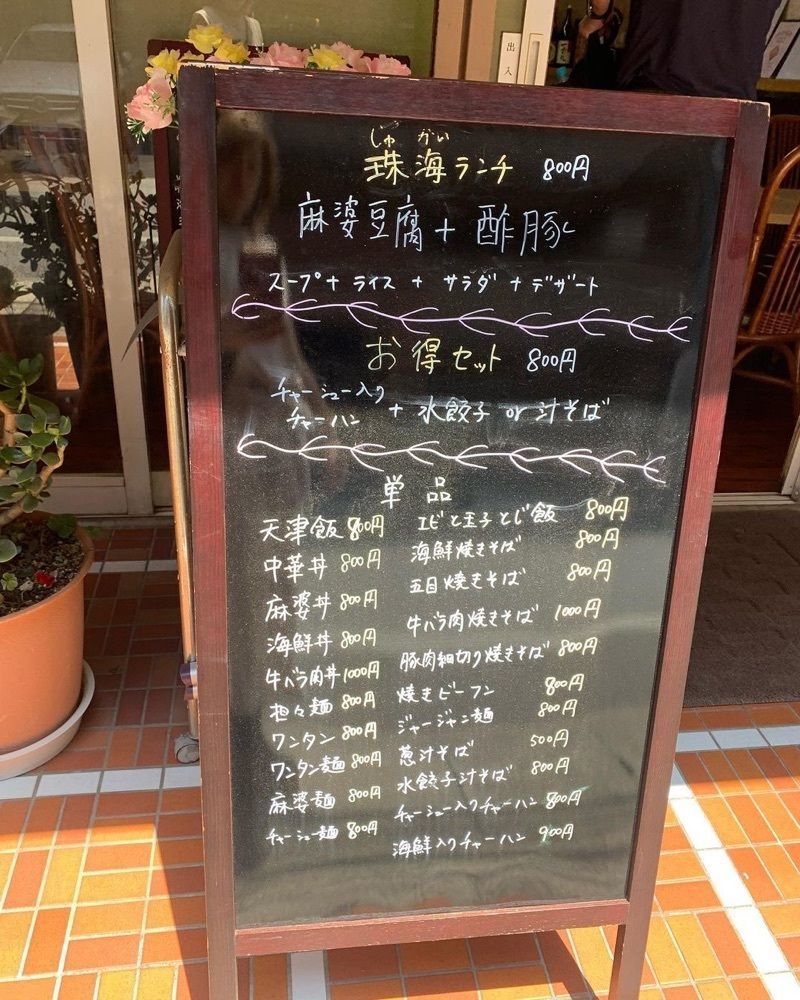 出入
じゅ かい
珠海ランチ 800円
麻婆豆腐 + 酢豚
スープ + ライス + サラダ + デザート
お得セット 800円
チャーシュー入り
チャーハン + 水餃子 or 汁そば
単品
天津飯 800円
中華丼 800円
麻婆丼 800円
海鮮丼 800円
牛バラ肉丼 1000円
担々麺 800円
ワンタン 800円
ワンタン麺 800円
麻婆麺 800円
チャーシュー麺 800円
エビと玉子とじ飯 800円
海鮮焼きそば 800円
五目焼きそば 800円
牛バラ肉焼きそば 1000円
豚肉細切り焼きそば 800円
焼きビーフン 800円
ジャージャン麺 800円
葱汁そば 500円
水餃子汁そば 800円
チャーシュー入りチャーハン 800円
海鮮入りチャーハン 900円